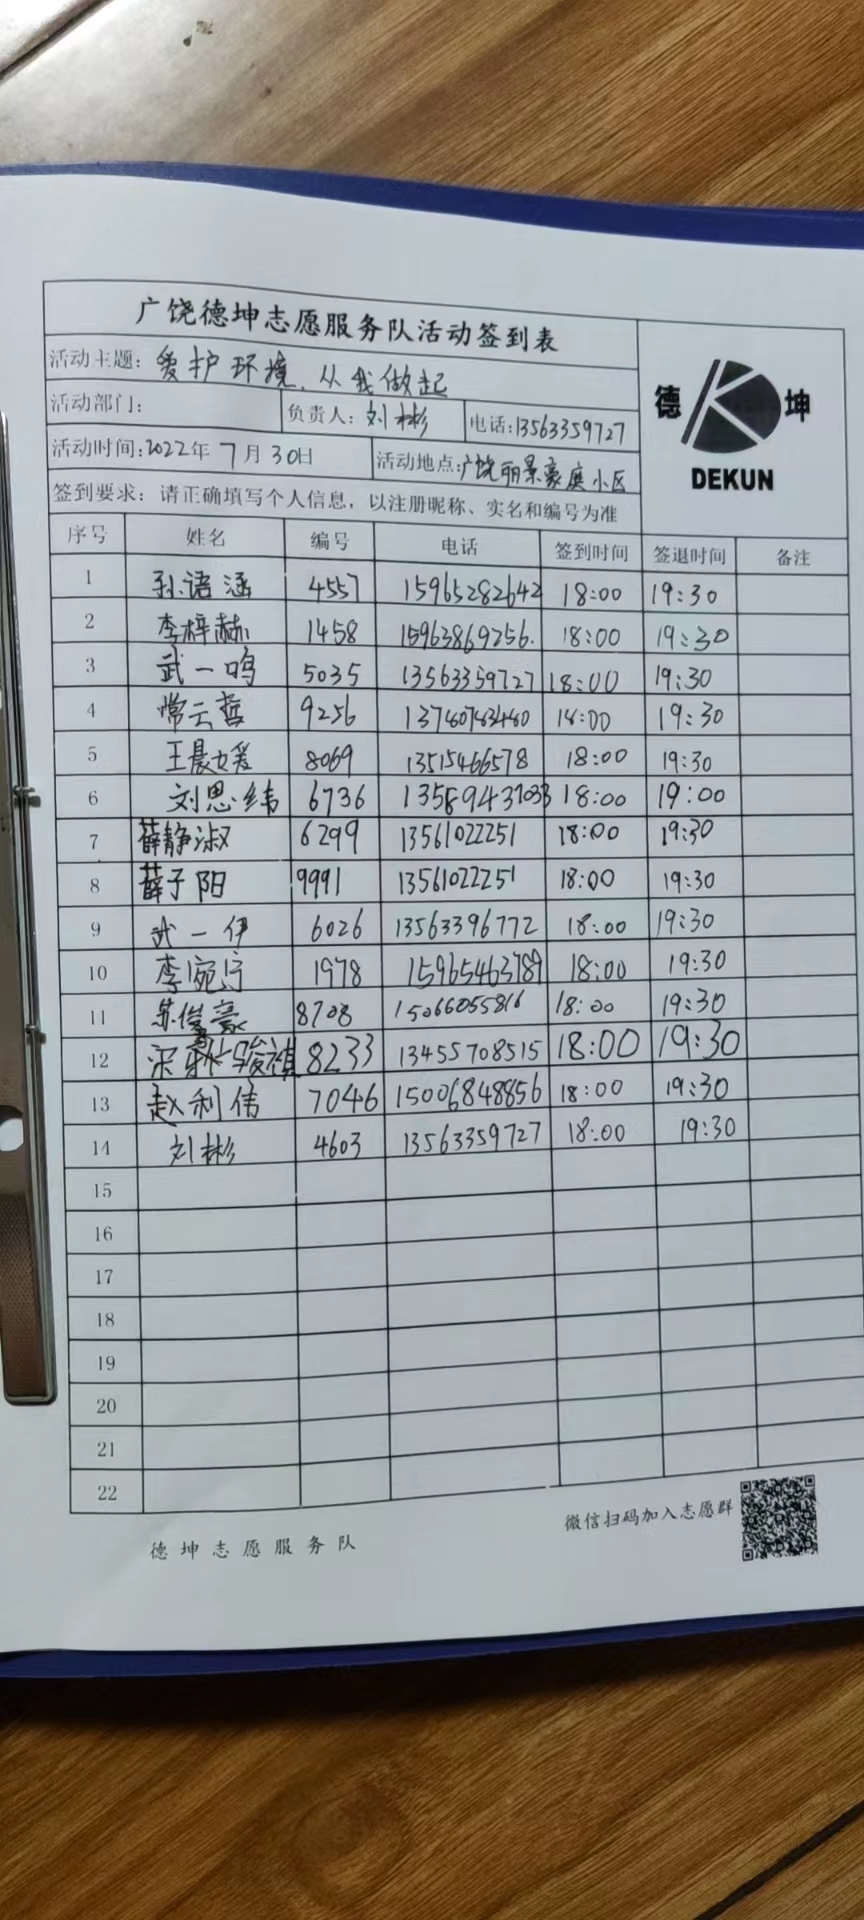 广饶德坤志愿服务队活动签到表
活动主题：爱护环境，从我做起
活动部门： 负责人：刘彬 电话：13563359727
活动时间：2022年7月30日 活动地点：广饶丽景豪庭小区
签到要求：请正确填写个人信息，以注册昵称、实名和编号为准
德 坤
DEKUN
序号 姓名 编号 电话 签到时间 签退时间 备注
1 孙语涵 4557 15965282642 18:00 19:30
2 李梓赫 1458 15963869256. 18:00 19:30
3 武一鸣 5035 13563359727 18:00 19:30
4 常云哲 9256 18:00 19:30
5 王晨媛 8069 13515466578 18:00 19:30
6 刘思纬 6736 18:00 19:00
7 薛静淑 6299 13561022251 18:00 19:30
8 薛子阳 9991 13561022251 18:00 19:30
9 武一伊 6026 13563396772 18:00 19:30
10 李宛泞 1978 15965463789 18:00 19:30
11 苏俊豪 8708 15066055816 18:00 19:30
12 宋 骏祺 8233 13455708515 18:00 19:30
13 赵利伟 7046 15006848856 18:00 19:30
14 刘彬 4603 13563359727 18:00 19:30
15
16
17
18
19
20
21
22
德坤志愿服务队
微信扫码加入志愿群